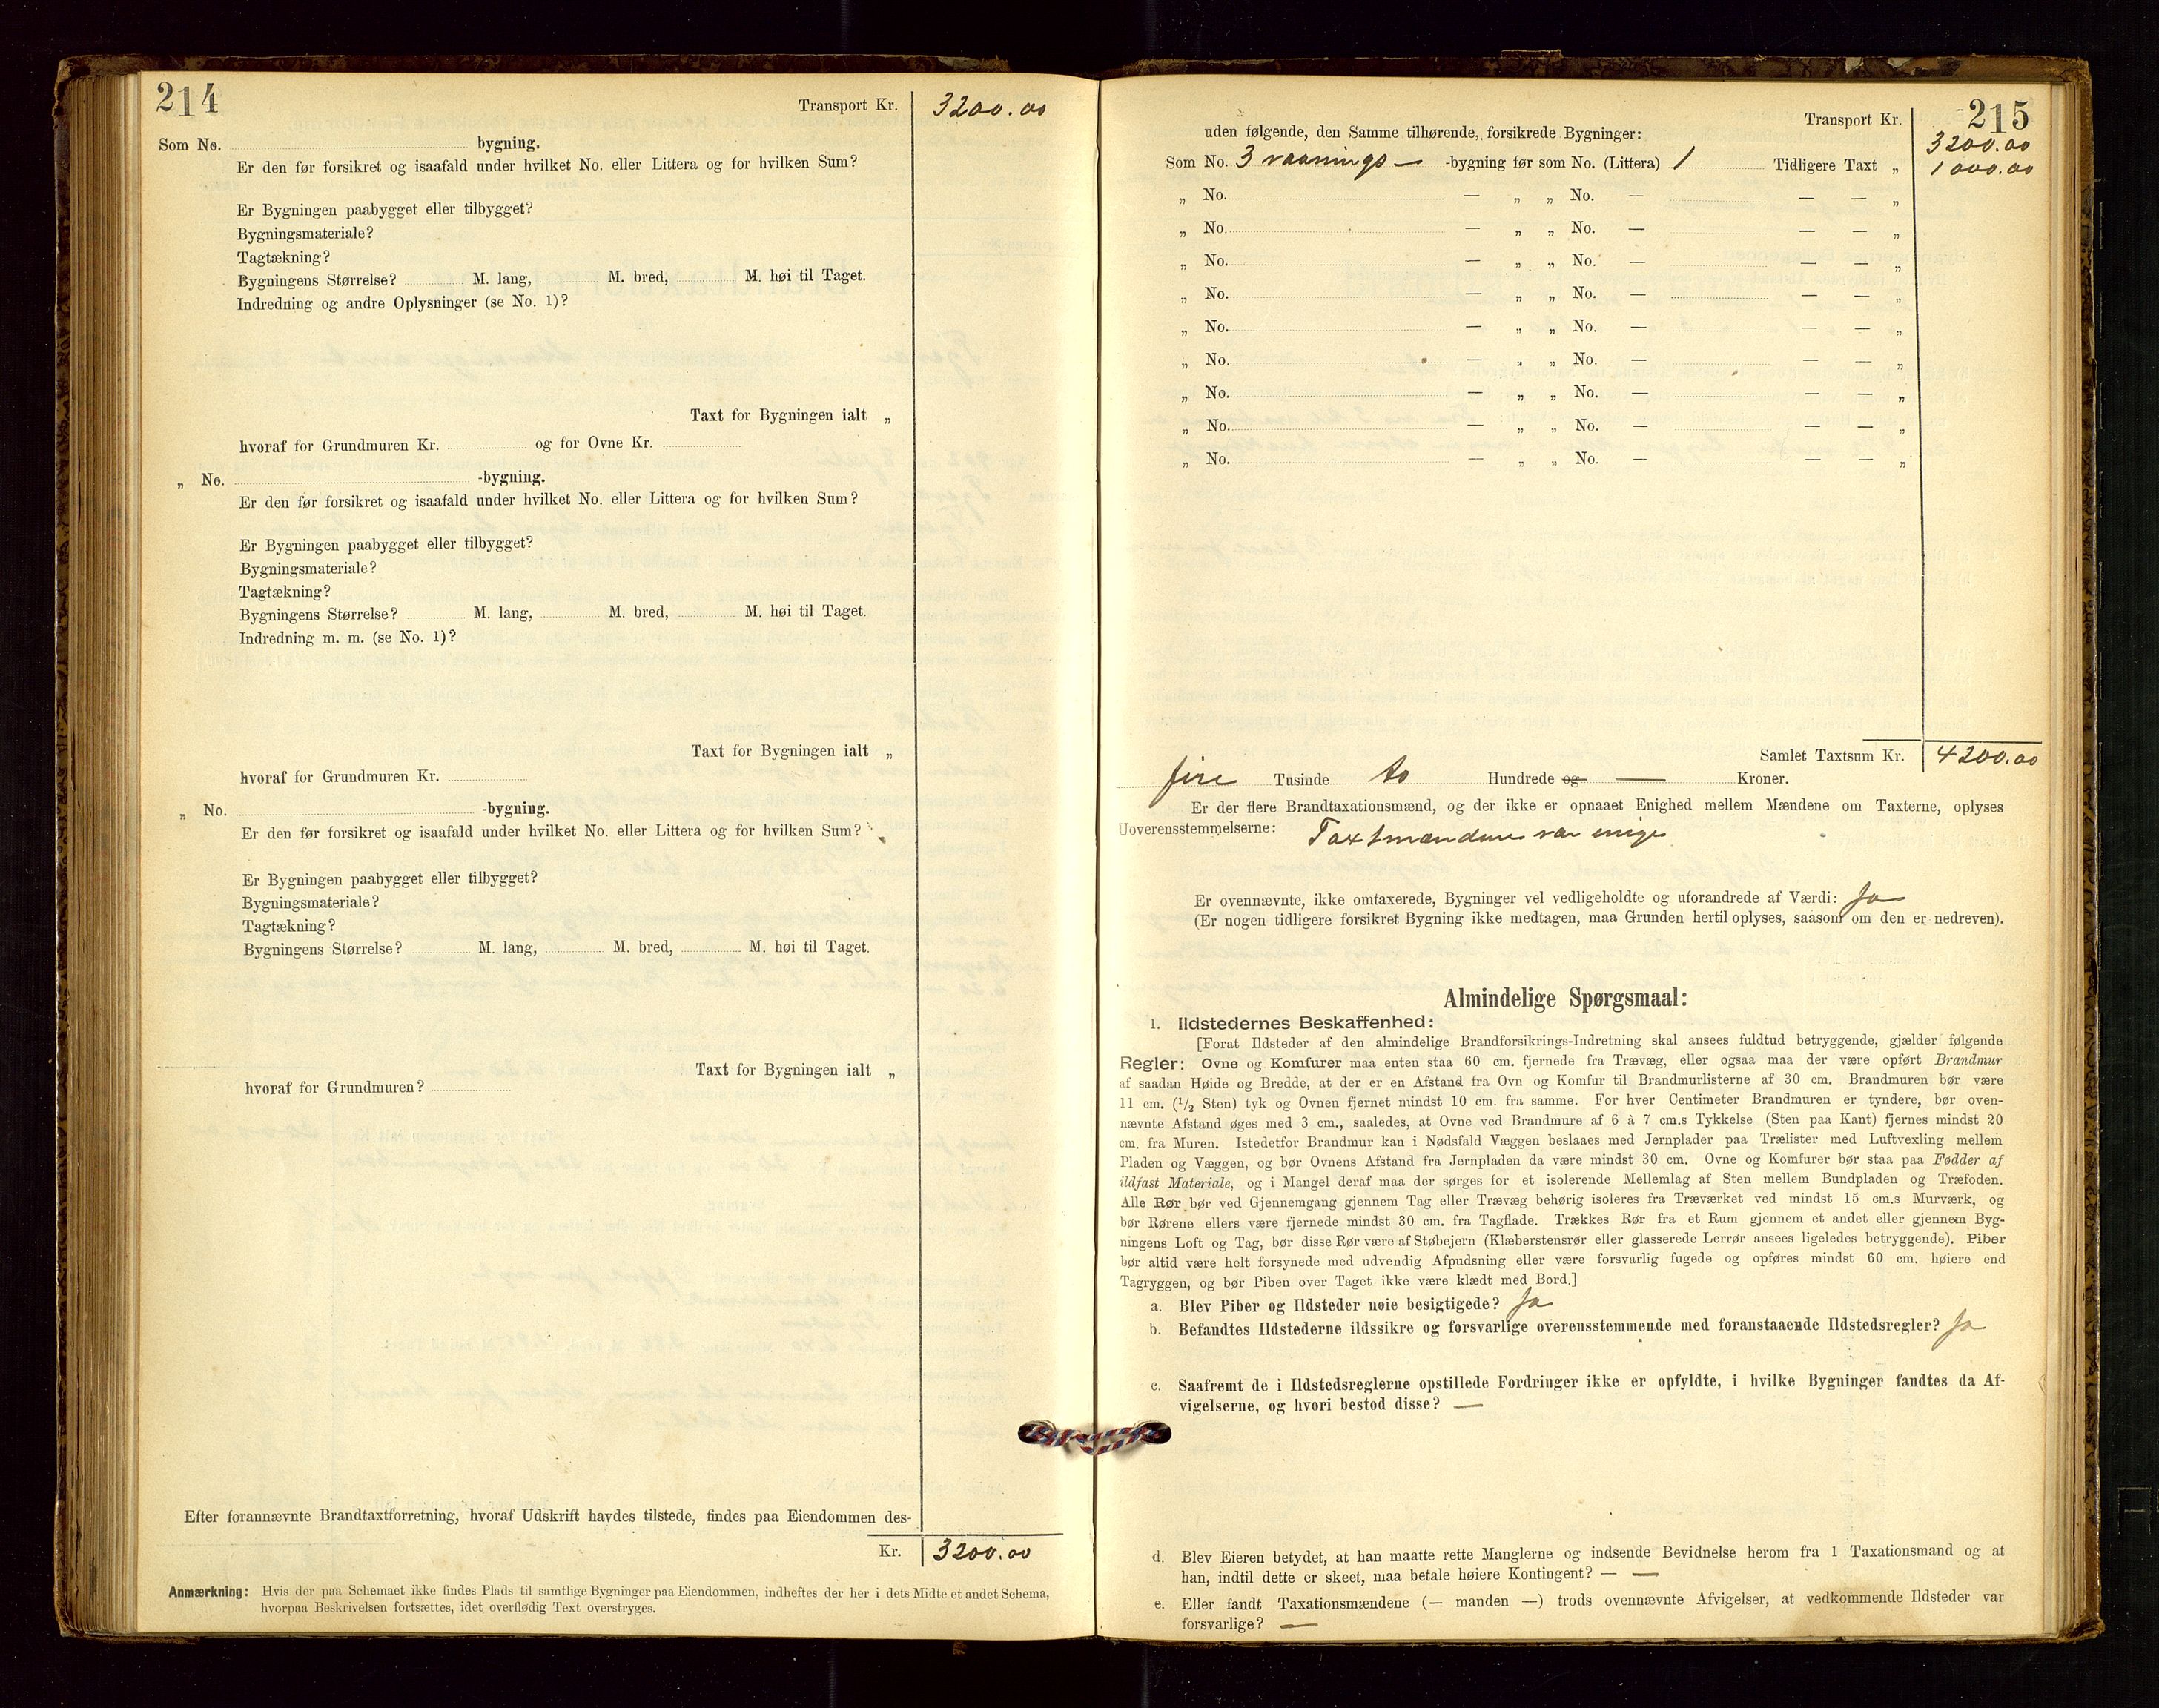 214
Transport Kr. 3200.00
Som No. bygning.
Er den før forsikret og isaafald under hvilket No. eller Littera og for hvilken Sum?
Er Bygningen paabygget eller tilbygget?
Bygningsmateriale?
Tagtækning?
Bygningens Størrelse? M. lang, M. bred, M. høi til Taget.
Indredning og andre Oplysninger (se No. 1)?
Taxt for Bygningen ialt „
hvoraf for Grundmuren Kr. og for Ovne Kr.
„ No. -bygning.
Er den før forsikret og isaafald under hvilket No. eller Littera og for hvilken Sum?
Er Bygningen paabygget eller tilbygget?
Bygningsmateriale?
Tagtækning?
Bygningens Størrelse? M. lang, M. bred, M. høi til Taget.
Indredning m. m. (se No. 1)?
Taxt for Bygningen ialt „
hvoraf for Grundmuren Kr.
„ No. -bygning.
Er den før forsikret og isaafald under hvilket No. eller Littera og for hvilken Sum?
Er Bygningen paabygget eller tilbygget?
Bygningsmateriale?
Tagtækning?
Bygningens Størrelse? M. lang, M. bred, M. høi til Taget.
Taxt for Bygningen ialt „
hvoraf for Grundmuren?
Efter forannævnte Brandtaxtforretning, hvoraf Udskrift havdes tilstede, findes paa Eiendommen des-
Kr. 3200.00
Anmærkning: Hvis der paa Schemaet ikke findes Plads til samtlige Bygninger paa Eiendommen, indheftes der her i dets Midte et andet Schema,
hvorpaa Beskrivelsen fortsættes, idet overflødig Text overstryges.
215
Transport Kr. 3200.00
uden følgende, den Samme tilhørende, forsikrede Bygninger:
Som No. 3 vaanings — -bygning før som No. (Littera) 1 Tidligere Taxt „ 1000.00
„ No. — „ „ No. — — — „
„ No. — „ „ No. — — — „
„ No. — „ „ No. — — — „
„ No. — „ „ No. — — — „
„ No. — „ „ No. — — — „
„ No. — „ „ No. — — — „
„ No. — „ „ No. — — — „
„ No. — „ „ No. — — — „
„ No. — „ „ No. — — — „
Samlet Taxtsum Kr. 4200.00
fire Tusinde to Hundrede og — Kroner.
Er der flere Brandtaxationsmænd, og der ikke er opnaaet Enighed mellem Mændene om Taxterne, oplyses
Uoverensstemmelserne: Taxtmændene var enige
Er ovennævnte, ikke omtaxerede, Bygninger vel vedligeholdte og uforandrede af Værdi: Ja
(Er nogen tidligere forsikret Bygning ikke medtagen, maa Grunden hertil oplyses, saasom om den er nedreven).
Almindelige Spørgsmaal:
1. Ildstedernes Beskaffenhed:
[Forat Ildsteder af den almindelige Brandforsikrings-Indretning skal ansees fuldtud betryggende, gjælder følgende
Regler: Ovne og Komfurer maa enten staa 60 cm. fjernede fra Trævæg, eller ogsaa maa der være opført Brandmur
af saadan Høide og Bredde, at der er en Afstand fra Ovn og Komfur til Brandmurlisterne af 30 cm. Brandmuren bør være
11 cm. (1/2 Sten) tyk og Ovnen fjernet mindst 10 cm. fra samme. For hver Centimeter Brandmuren er tyndere, bør oven-
nævnte Afstand øges med 3 cm., saaledes, at Ovne ved Brandmure af 6 à 7 cm.s Tykkelse (Sten paa Kant) fjernes mindst 20
cm. fra Muren. Istedetfor Brandmur kan i Nødsfald Væggen beslaaes med Jernplader paa Trælister med Luftvexling mellem
Pladen og Væggen, og bør Ovnens Afstand fra Jernpladen da være mindst 30 cm. Ovne og Komfurer bør staa paa Fødder af
ildfast Materiale, og i Mangel deraf maa der sørges for et isolerende Mellemlag af Sten mellem Bundpladen og Træfoden.
Alle Rør bør ved Gjennemgang gjennem Tag eller Trævæg behørig isoleres fra Træværket ved mindst 15 cm.s Murværk, og
bør Rørene ellers være fjernede mindst 30 cm. fra Tagflade. Trækkes Rør fra et Rum gjennem et andet eller gjennem Byg-
ningens Loft og Tag, bør disse Rør være af Støbejern (Klæberstensrør eller glasserede Lerrør ansees ligeledes betryggende). Piber
bør altid være holt forsynede med udvendig Afpudsning eller være forsvarlig fugede og opføres mindst 60 cm. høiere end
Tagryggen, og bør Piben over Taget ikke være klædt med Bord.]
a. Blev Piber og Ildsteder nøie besigtigede? Ja
b. Befandtes Ildstederne ildssikre og forsvarlige overensstemmende med foranstaaende Ildstedsregler? Ja
c. Saafremt de i Ildstedsreglerne opstillede Fordringer ikke er opfyldte, i hvilke Bygninger fandtes da Af-
vigelserne, og hvori bestod disse? —
d. Blev Eieren betydet, at han maatte rette Manglerne og indsende Bevidnelse herom fra 1 Taxationsmand og at
han, indtil dette er skeet, maa betale høiere Kontingent? — —
e. Eller fandt Taxationsmændene (— manden —) trods ovennævnte Afvigelser, at vedkommende Ildsteder var
forsvarlige? —